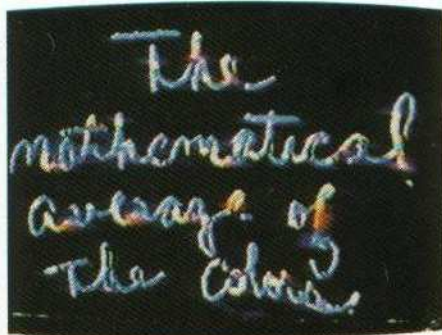 The
mathematical
average of
the colors.